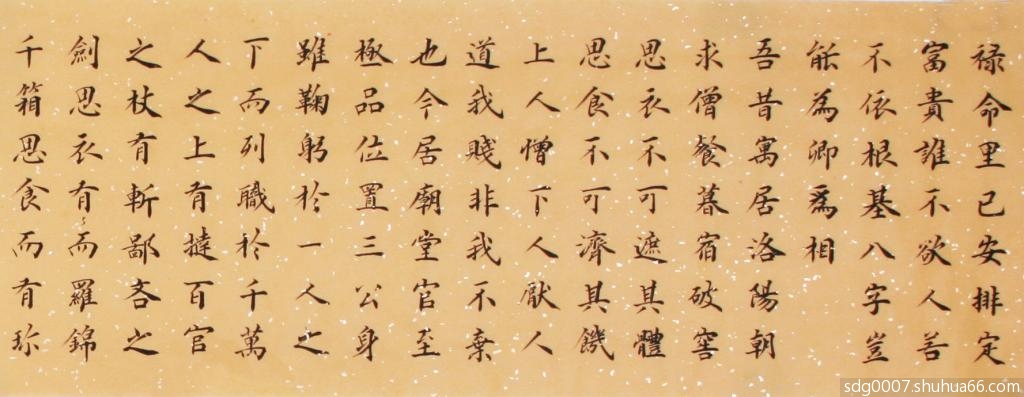 禄命里已安排定
富貴誰不欲人若
不依根基八字豈
能為卿為相
吾昔寓居洛陽朝
求僧餐暮宿破窖
思衣不可遮其體
思食不可濟其饑
上人憎下人厭人
道我賤非我不棄
也今居廟堂官至
極品位置三公身
雖鞠躬於一人之
下而列職於千萬
人之上有撻百官
之杖有斬鄙吝之
劍思衣有而羅錦
千箱思食而有珍
sdg0007.shuhua66.com